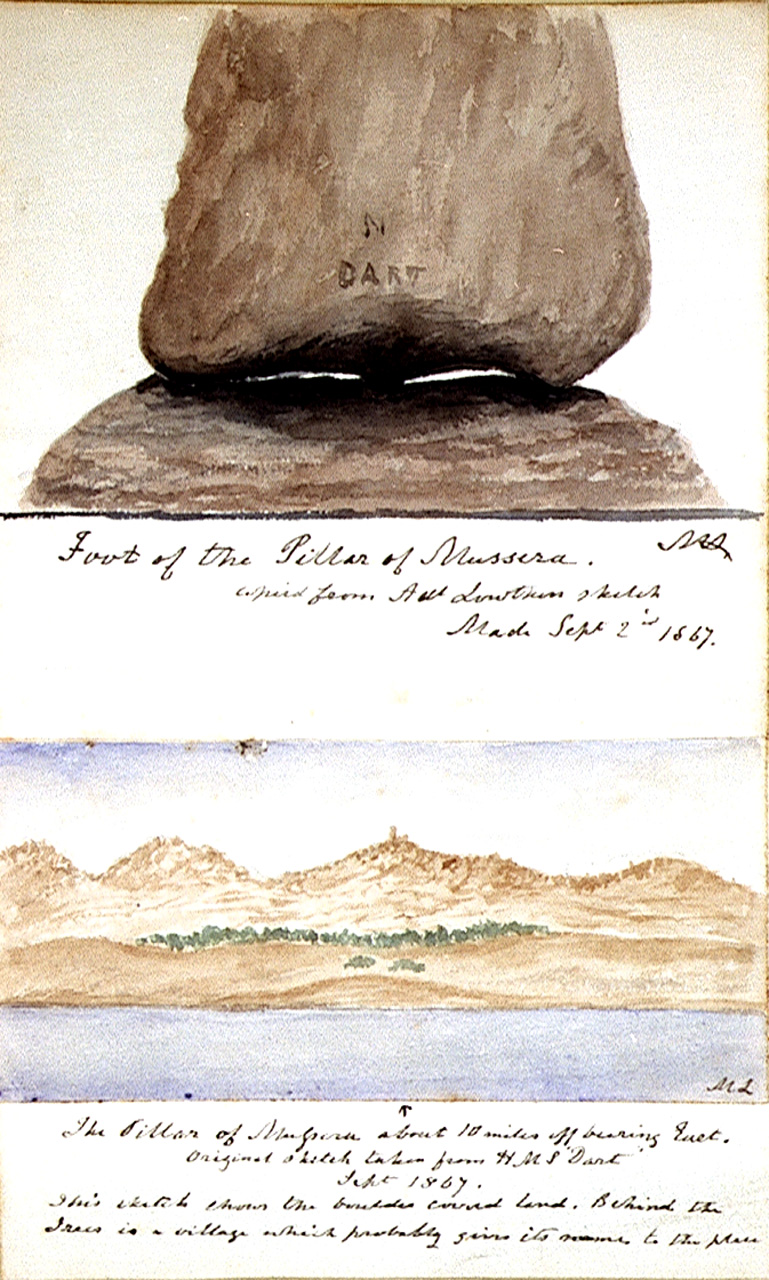 N
DART
Foot of the Pillar of Mussera.
copied from Sketch
Made Sept 2nd 1867.
ML
The Pillar of Mussera about 10 miles off bearing East.
Original Sketch taken from HMS "Dart"
Sept 1867.
This sketch shows the boulder covered land. Behind the
Trees is a village which probably gives its name to the place